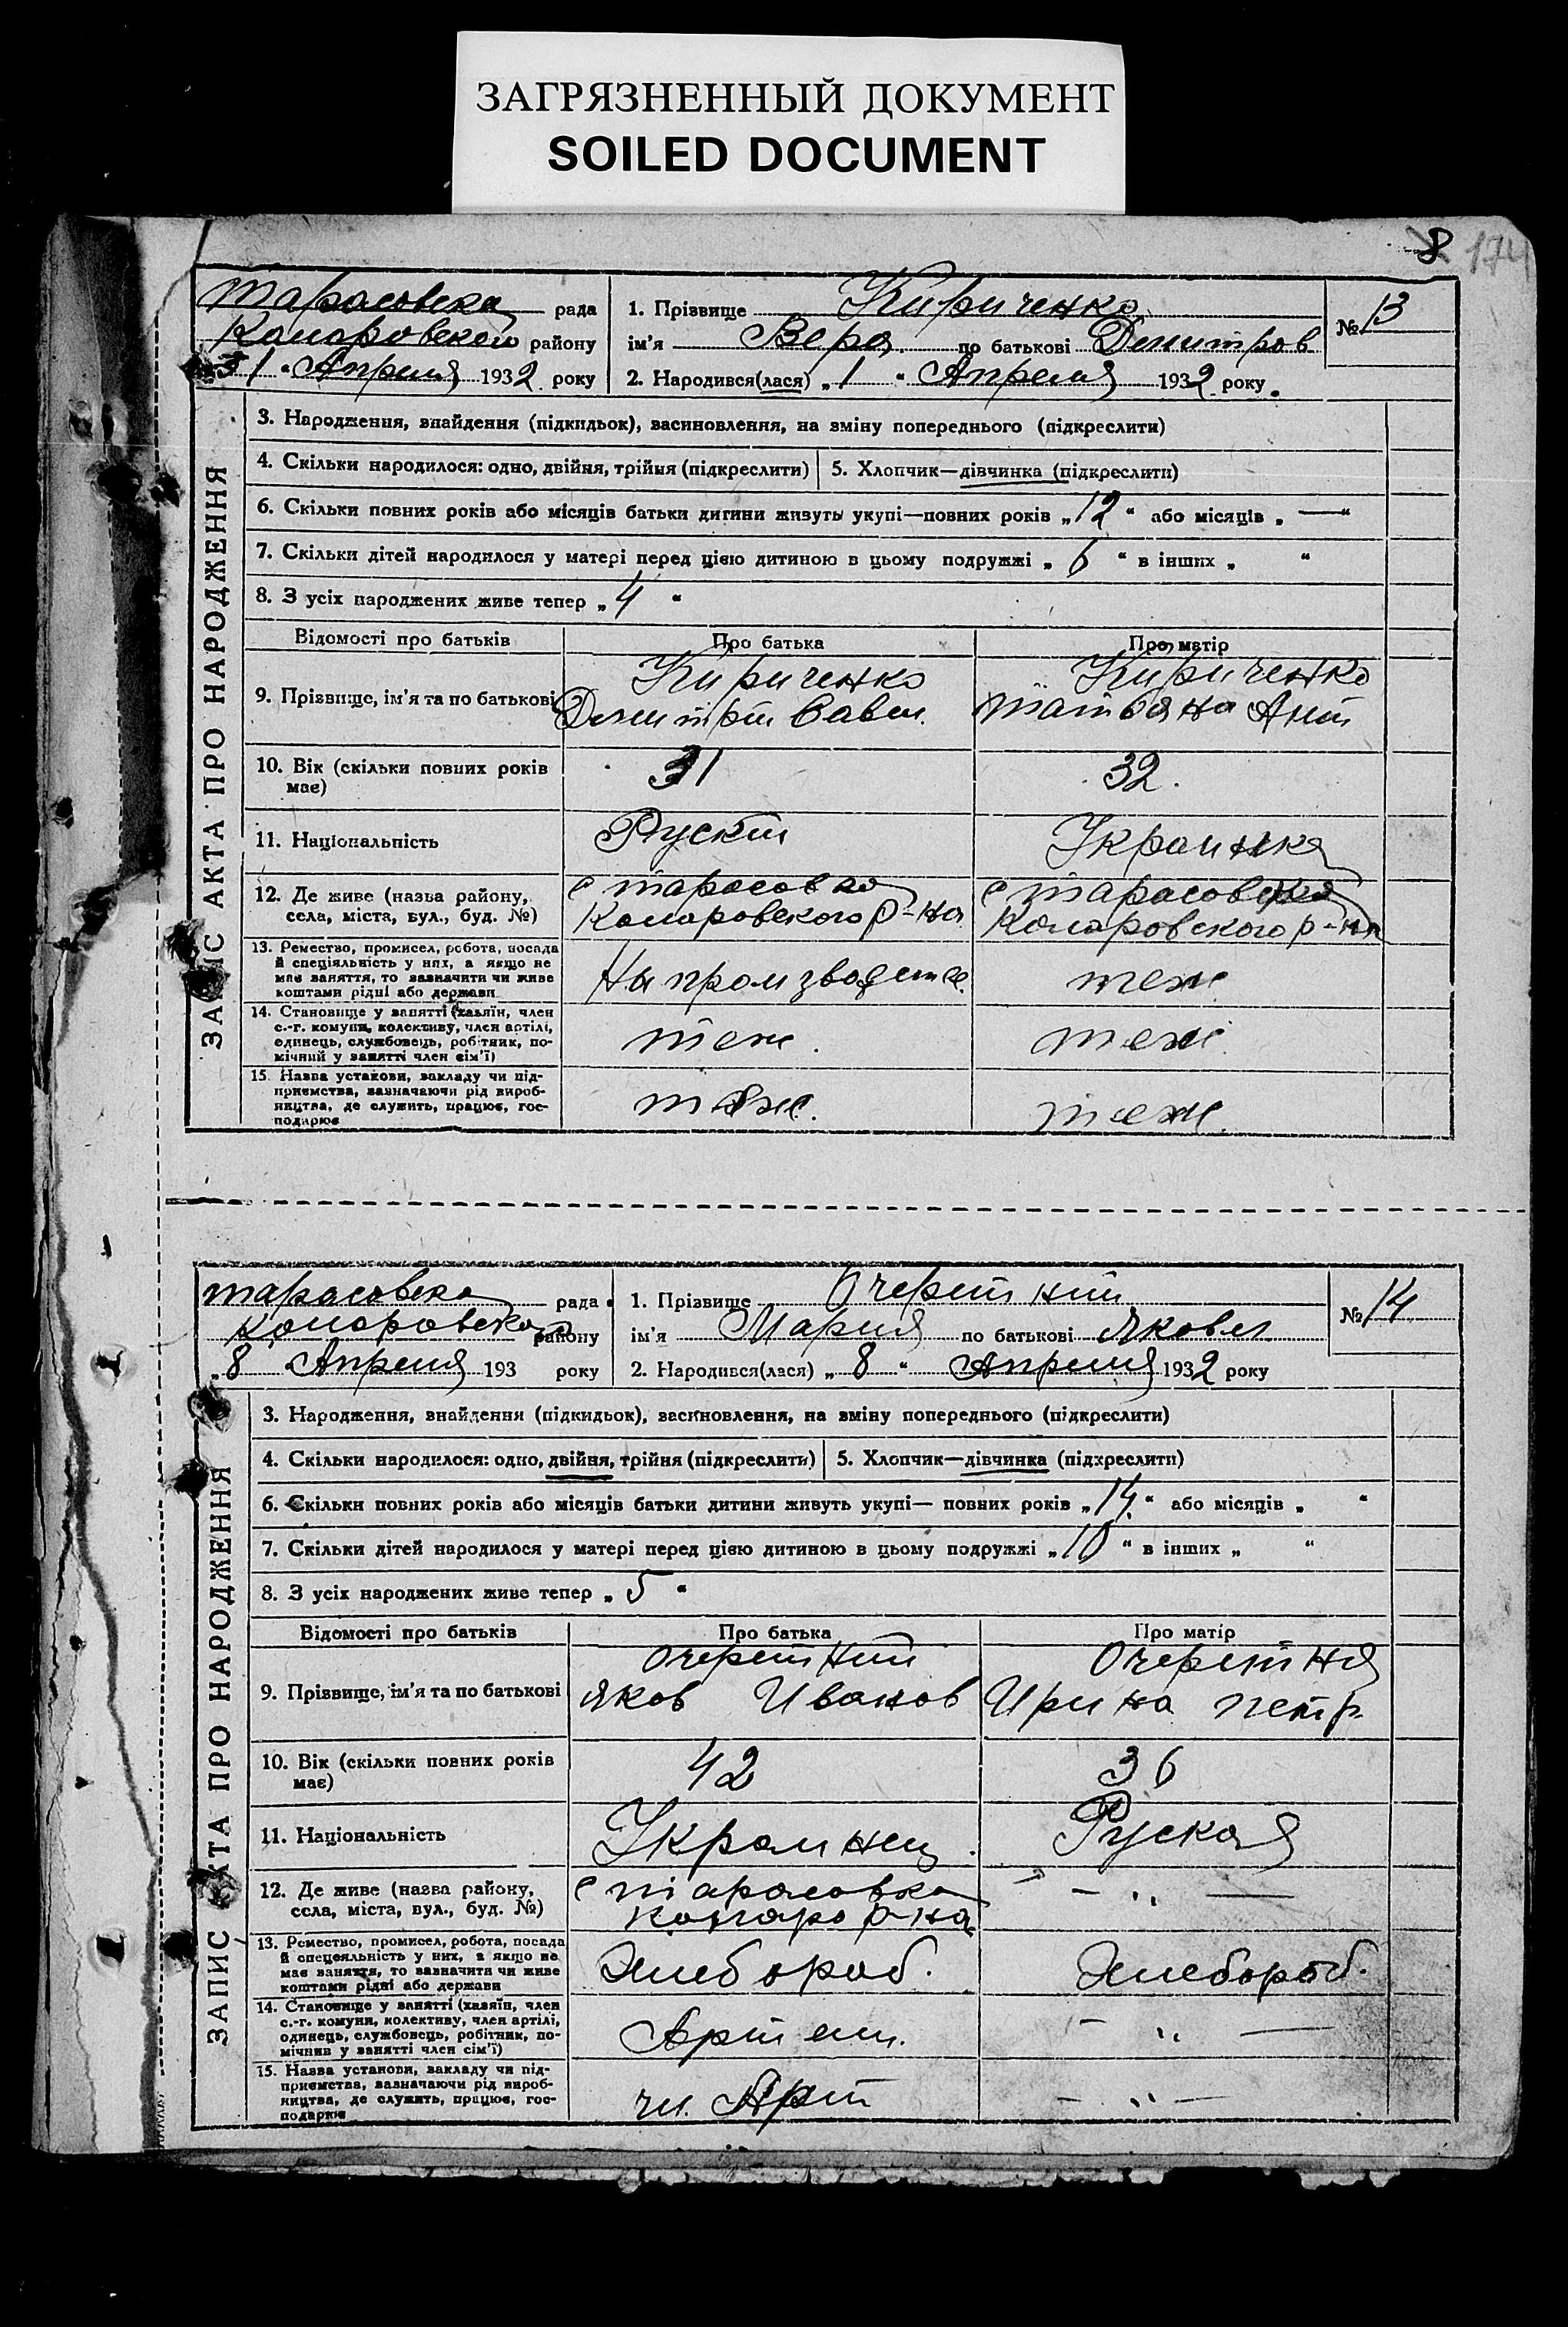 ЗАГРЯЗНЕННЫЙ ДОКУМЕНТ
SOILED DOCUMENT
8 174
Тарасовска рада
Комаровской району
1 Апреля 1932 року
1. Прізвище Кириченко
ім'я Вера по батькові Демитров
2. Народився(лася) „1“ Апреля 1932 року.
№ 13
ЗАПИС АКТА ПРО НАРОДЖЕННЯ
3. Народження, знайдення (підкидьок), васиновлення, на зміну попереднього (підкреслити)
4. Скільки народилося: одно, двійня, трійня (підкреслити) 5. Хлопчик—дівчинка (підкреслити)
6. Скільки повних років або місяців батьки дитини живуть укупі—повних років „12“ або місяців „—“
7. Скільки дітей народилося у матері перед цією дитиною в цьому подружжі „6“ в інших „ “
8. З усіх народжених живе тепер „4“
Відомості про батьків Про батька Про матір
9. Прізвище, ім'я та по батькові
Кириченко Кириченко
Демитрий Савел. Татьяна Ант
10. Вік (скільки повних років має) 31 32.
11. Національність Руский Украинка
12. Де живе (назва району, села, міста, вул., буд. №)
с Тарасовка с Тарасовка
Комаровского р-на Комаровского р-на
13. Ремество, промисел, робота, посада
й спеціяльність у них, а якщо не
має заняття, то зазначити чи живе
коштами рідні або держави
На производстве. теж
14. Становище у занятті (хазяїн, член
с.-г. комуни, колективу, член артілі,
одинець, службовець, робітник, по-
мічний у занятті член сім'ї)
теж. теж.
15. Назва установи, закладу чи під-
приємства, зазначаючи рід вироб-
ництва, де служить, працює, гос-
подарює
теж. теж.
Тарасовска рада
Комаровского району
„8 Апреля 193 року
1. Прізвище Очеретний
ім'я Мария по батькові Яковл
2. Народився(лася) „8“ Апреля 1932 року
№ 14
ЗАПИС АКТА ПРО НАРОДЖЕННЯ
3. Народження, знайдення (підкидьок), васиновлення, на зміну попереднього (підкреслити)
4. Скільки народилося: одно, двійня, трійня (підкреслити) 5. Хлопчик—дівчинка (підкреслити)
6. Скільки повних років або місяців батьки дитини живуть укупі— повних років „14“ або місяців „ “
7. Скільки дітей народилося у матері перед цією дитиною в цьому подружжі „10“ в інших „ “
8. З усіх народжених живе тепер „5“
Відомості про батьків Про батька Про матір
9. Прізвище, ім'я та по батькові
Очеретний Очеретня
Яков Иванов Ирина Петр
10. Вік (скільки повних років має) 42 36
11. Національність Украинец. Руская
12. Де живе (назва району, села, міста, вул., буд. №)
с Тарасовка — „ —
Комаро р-на
13. Ремество, промисел, робота, посада
й спецеяльність у них, а якщо не
має заняття, то зазначити чи живе
коштами рідні або держави
Хлебороб. Хлебороб.
14. Становище у занятті (хазяїн, член
с.-г. комуни, колективу, член артілі,
одинець, службовець, робітник, по-
мічний у занятті член сім'ї)
Артель. — „ —
15. Назва установи, закладу чи під-
приємства, зазначаючи рід вироб-
ництва, де служить, працює, гос-
подарює
чл. Арт — „ —